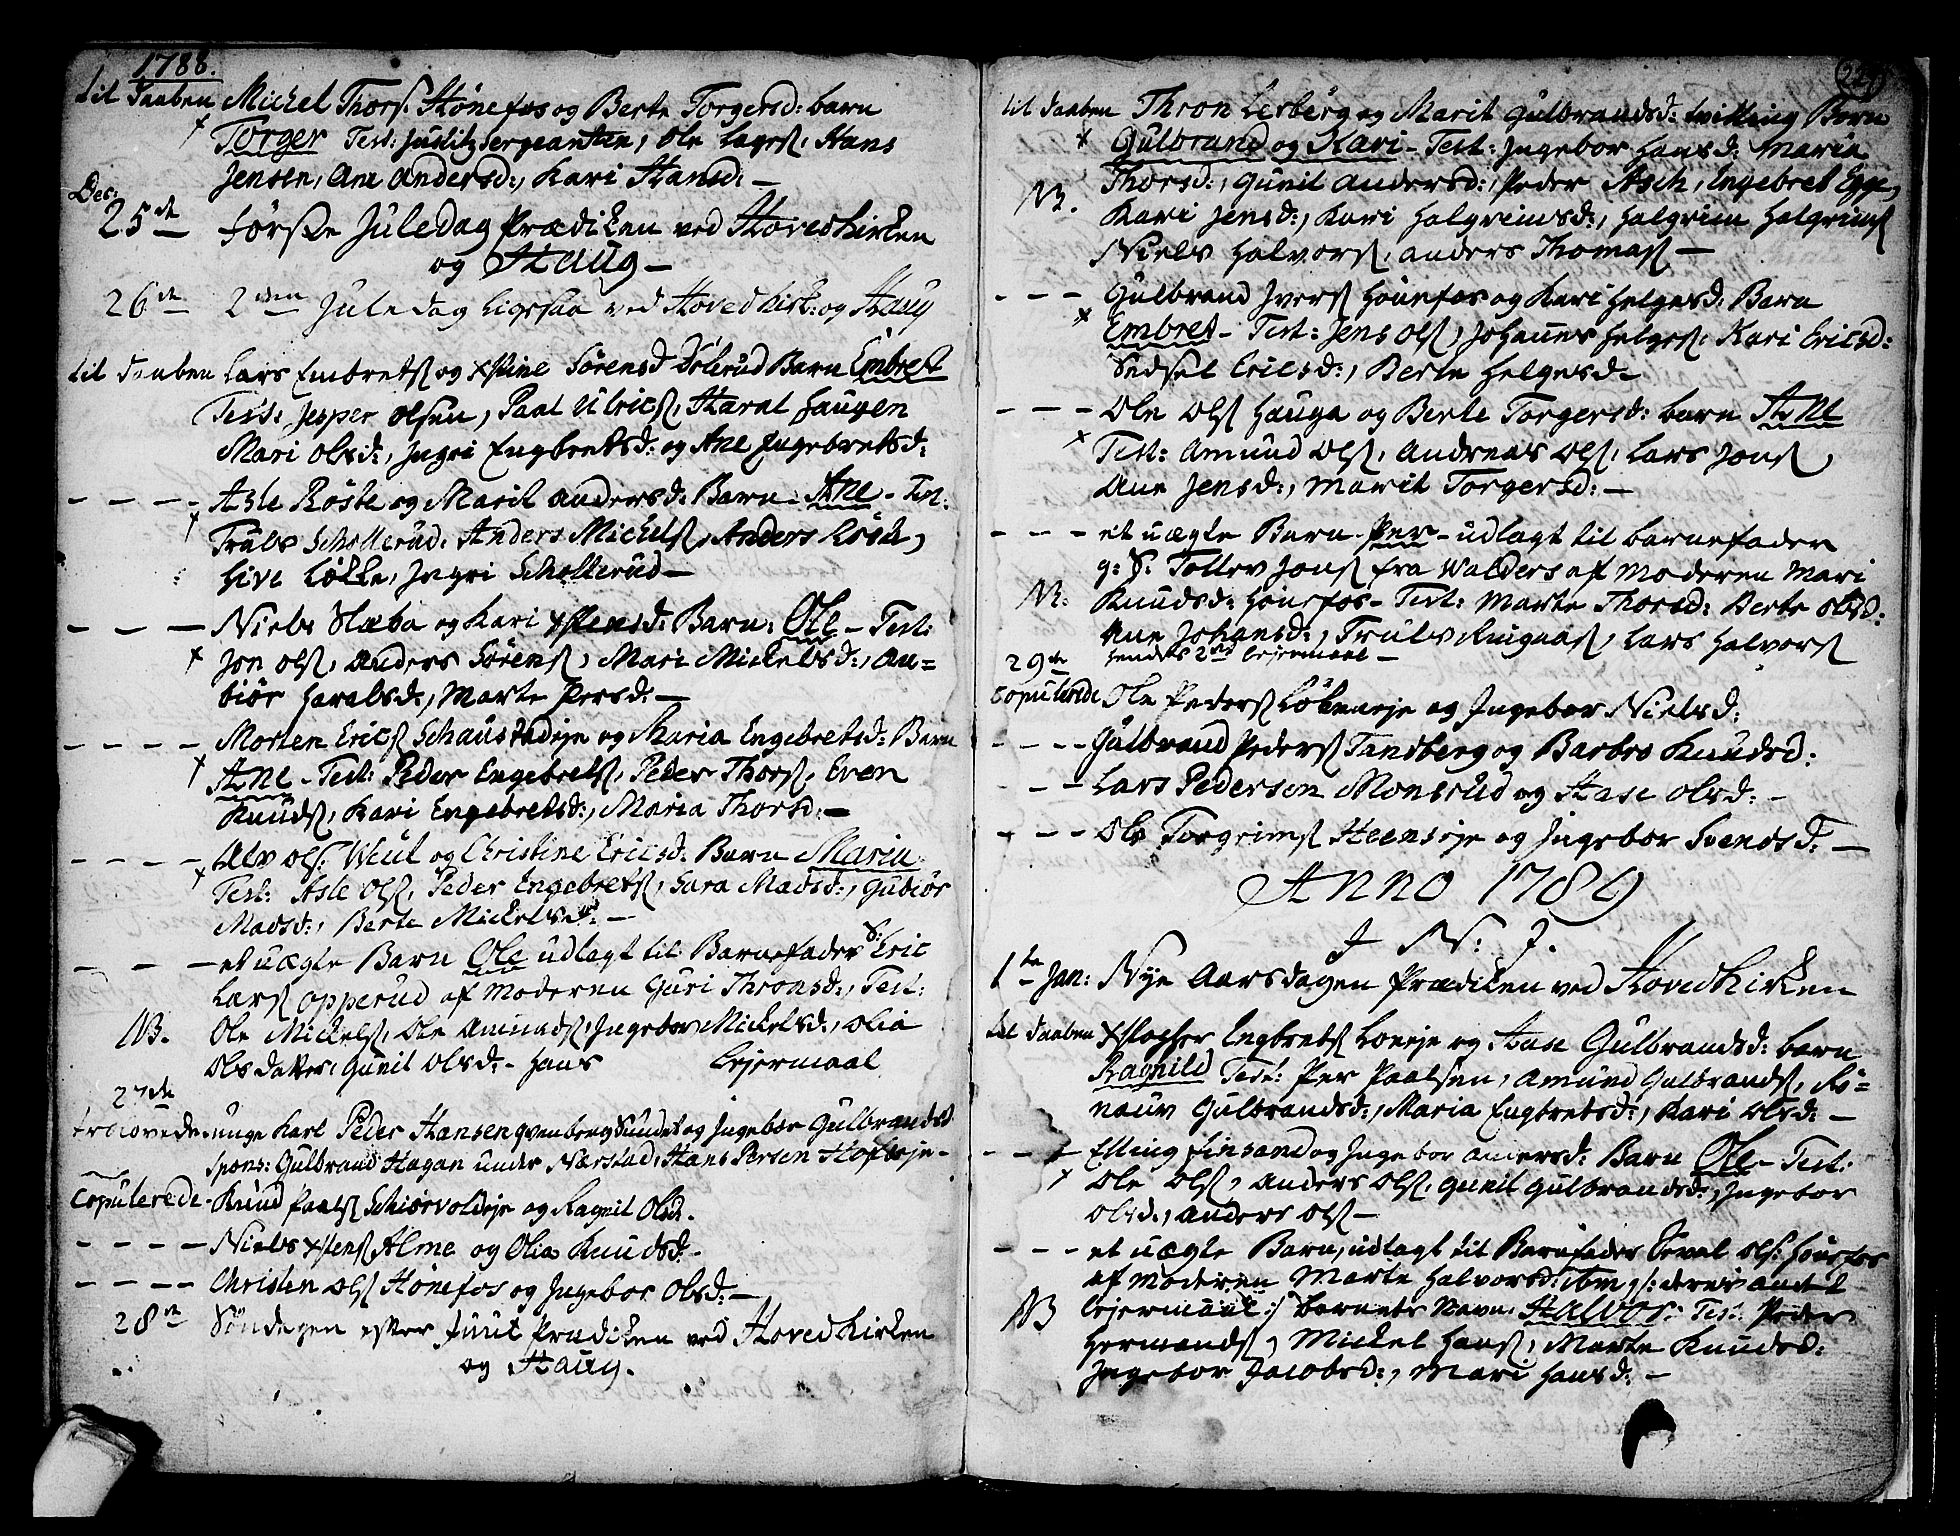 1788.
til Daaben Michel Thorſ: Hönefos og Berte Torgersd: barn
Torger Test: Justitz Sergeanten, Ole Larsſ, Hans
Jensen, Ane Andersd:, Kari Hansd: —
Dec:
25de förſte Juledag Prædiken ved Hovedkirken
og Haug —
26de 2den Juledag ligesaa ved Hovedkirk: og Haug
til Daaben Lars Embretſ og Xstine Sörensd Barn Embret
Test: Jesper Olsen, Paal Ulricſ, Haral Haugen
Mari Olsd:, Ingri Engbretsd: og Ane Ingebretsd:
- - - - Asle Röste og Marit Andersd: Barn - Ane - Test:
Truls Schollerud, Anders Michelſ, Anders
Löcke, Ingri Schollerud —
- - - Niels Slæba og Kari Xstensd: Barn: Ole - Test:
Jon Olſ, Anders Sörenſ, Mari Mickelsd:, An=
biör Haralsd:, Marte Persd: —
- - - - Morten Ericſ og Maria Engebretsd: Barn
Ane - Test: Peder Engebretſ, Peder Thorſ, Even
Knudſ, Kari Engebretsd:, Maria Thorsd: —
- - - - Alv Olſ: Weul og Christine Ericsd: Barn Maria
Test: Asle Olſ, Peder Engebretſ, Sara Madsd:, Gubiör
Madsd:, Berte Mickelsd: —
- - - et uægte Barn Ole udlagt til Barnefader S: Eric
Larſ Opperud af Moderen Guri Thronsd:, Test:
NB. Ole Mickelſ, Ole Amundſ, Ingebor Mickelsd:, Olia
Olsdatter, Gunil Olsd: - Hans Lejermaal
27de
trolovede unge Karl Peder Hansen Qvenberg Sundet og Ingebor Gulbrandsd
Spons: Gulbrand Hagan under Nærstad, Hans Persen Hofseje -
Copulerede - Knud Paalſ Schiørvoldeje og Ragnil Olsd.
- - - - Niels Xstenſ Alme og Olia Knudsd: -
- - - - Christen Olſ Hönefos og Ingebor Olsd: —
28de Söndagen efter Juul Prædiken ved Hovedkirken
og Haug.
til Daaben Thron Lerberg og Marit Gulbrandsd: tvilling Börn
Gulbrand og Kari - Test: Ingebor Hansd: Maria
Thorsd:, Gunil Andersd:, Peder Asch, Engebret Egge,
NB. Kari Jensd:, Kari Halgrimsd:, Halgrim Halgrimſ
Niels Halvorſ, Anders Thomaſ —
- - - Gulbrand Iverſ Hönefos og Kari Helgesd: Barn
Embret - Test: Jens Olſ, Johannes Helgeſ: Kari Ericsd:
Sedsel Ericsd:, Berte Helgesd: -
- - - Ole Olſ Hauga og Berte Torgersd: barn Ane
Test: Amund Olſ, Andreas Olſ, Lars Jonſ,
Ane Jensd:, Marit Torgersd: —
- - - et uægte Barn Per - udlagt til barnefader
g: S: Tollev Jonſ fra Walders af Moderen Mari
NB. Knudsd: Hönefos - Test: Marte Thorsd: Berte Olsd:
Ane Johansd:, Truls Ringaaſ, Lars Halvorſ
hendes 2det Lejermaal -
29de
Copulerede Ole Pederſ Lökeneje og Ingebor Nielsd:
- - - - Gulbrand Pederſ Tandberg og Barbro Knudsd:
- - - Lars Pedersen Monsrud og Aase Olsd: -
- - - Ole Torgrimſ Heenseje og Ingebor Svendsd: —
Anno 1789
I N: J.
1te Jan: Nye Aarsdagen Prædiken ved Hovedkirken
til Daaben Xstopher Engbretſ Loeeje og Aase Gulbrandsd: barn
Ragnild Test: Per Paalsen, Amund Gulbrandſ, Rö=
nauv Gulbrandsd:, Maria Engbretsd:, Kari Olsd: —
- - - Elling Finsand og Ingebor Andersd: Barn Ole - Test:
Ole Olſ, Anders Olſ, Gunil Gulbrandsd:, Ingebor
Olsd:, Anders Olſ —
- - - et uægte Barn, udlagt til Barnfader Tevel Olſ: Hönefos
af Moderen Marte Halvorsd: ibm /: deres andet
NB Lejermaal :/ barnets Navn: Halvor: Test: Peder
Hermandſ, Mickel Hanſ, Marte Knudsd:
Ingebor Jacobsd:, Mari Hansd: —